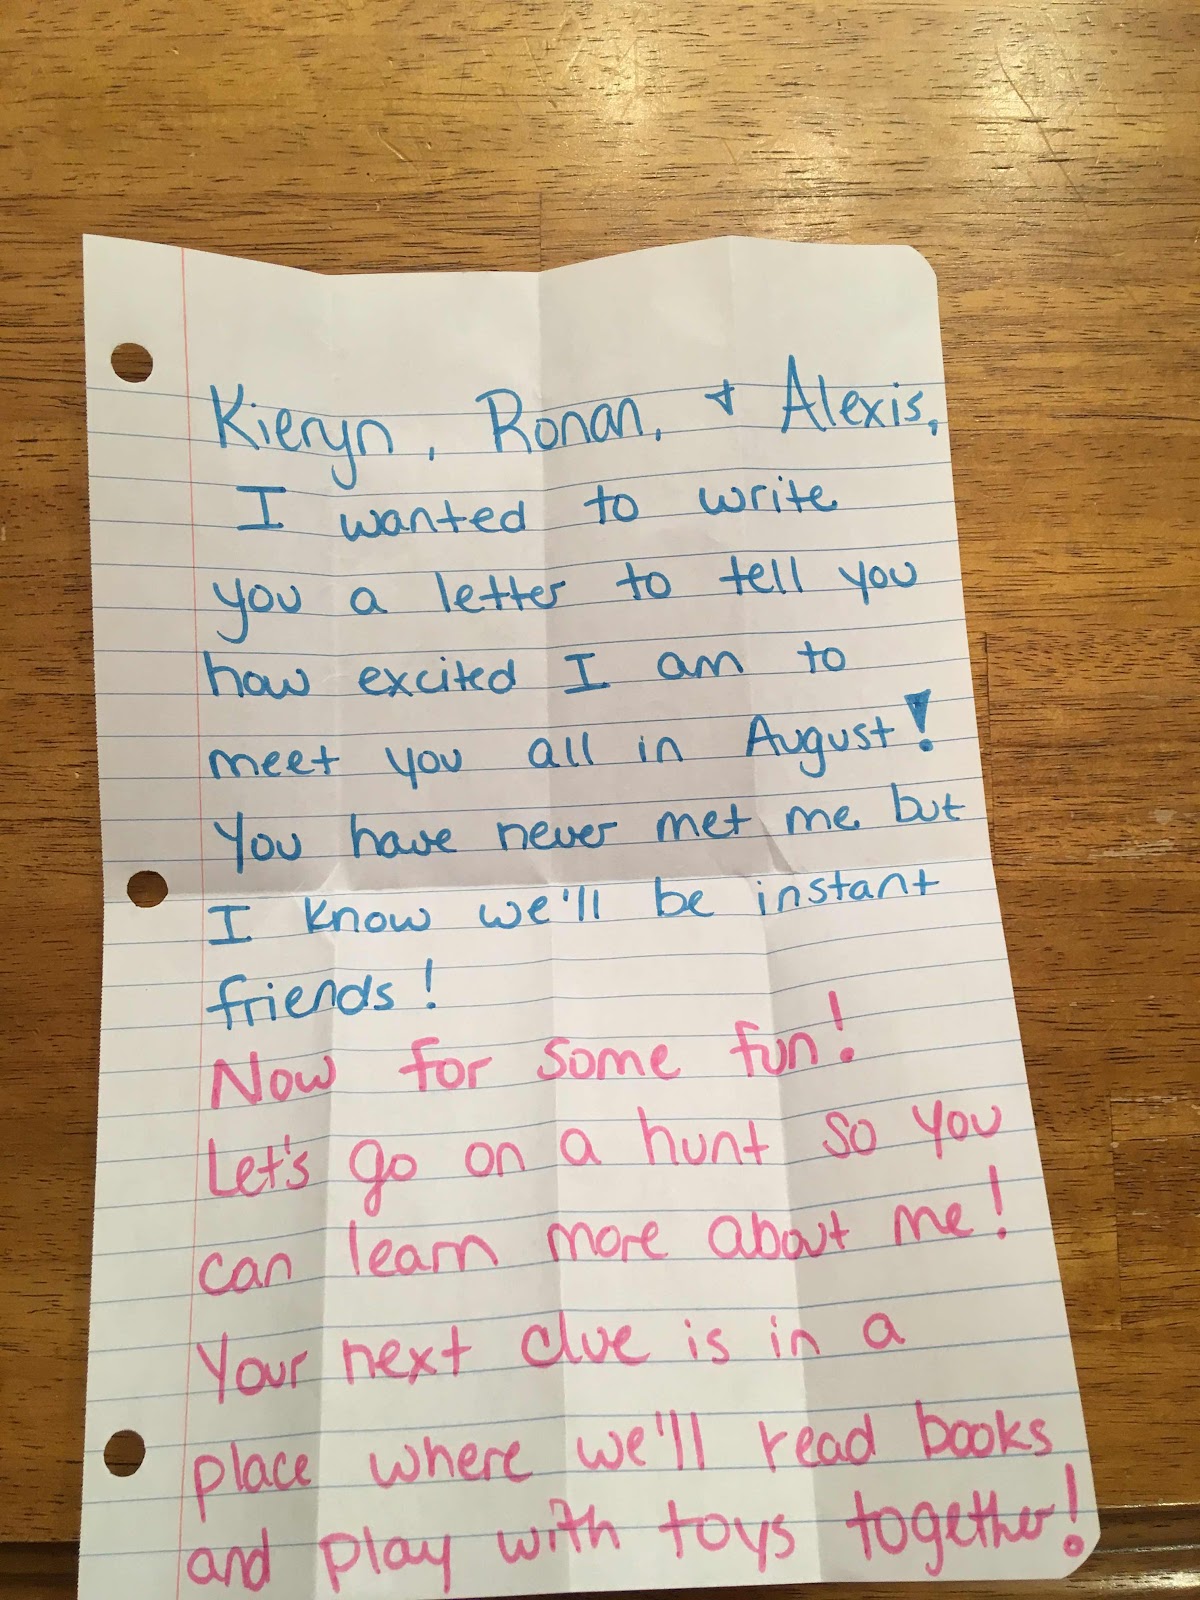 Kieryn, Ronan, + Alexis,
I wanted to write
you a letter to tell you
how excited I am to
meet you all in August!
You have never met me but
I know we'll be instant
friends!
Now for some fun!
Let's go on a hunt so you
can learn more about me!
Your next clue is in a
place where we'll read books
and play with toys together!